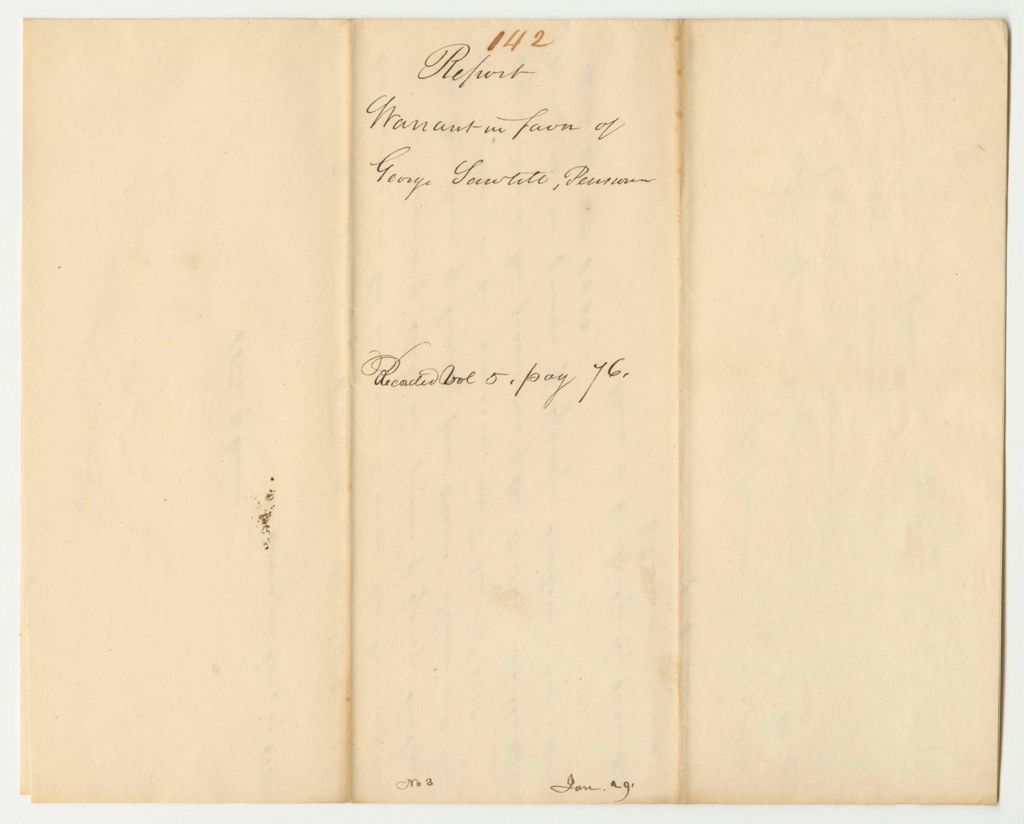 142
Report
Warrant in favor of
George Sawtell, Pensioner
Recorded Vol 5. pag 76.
No 3 Jan. 29.